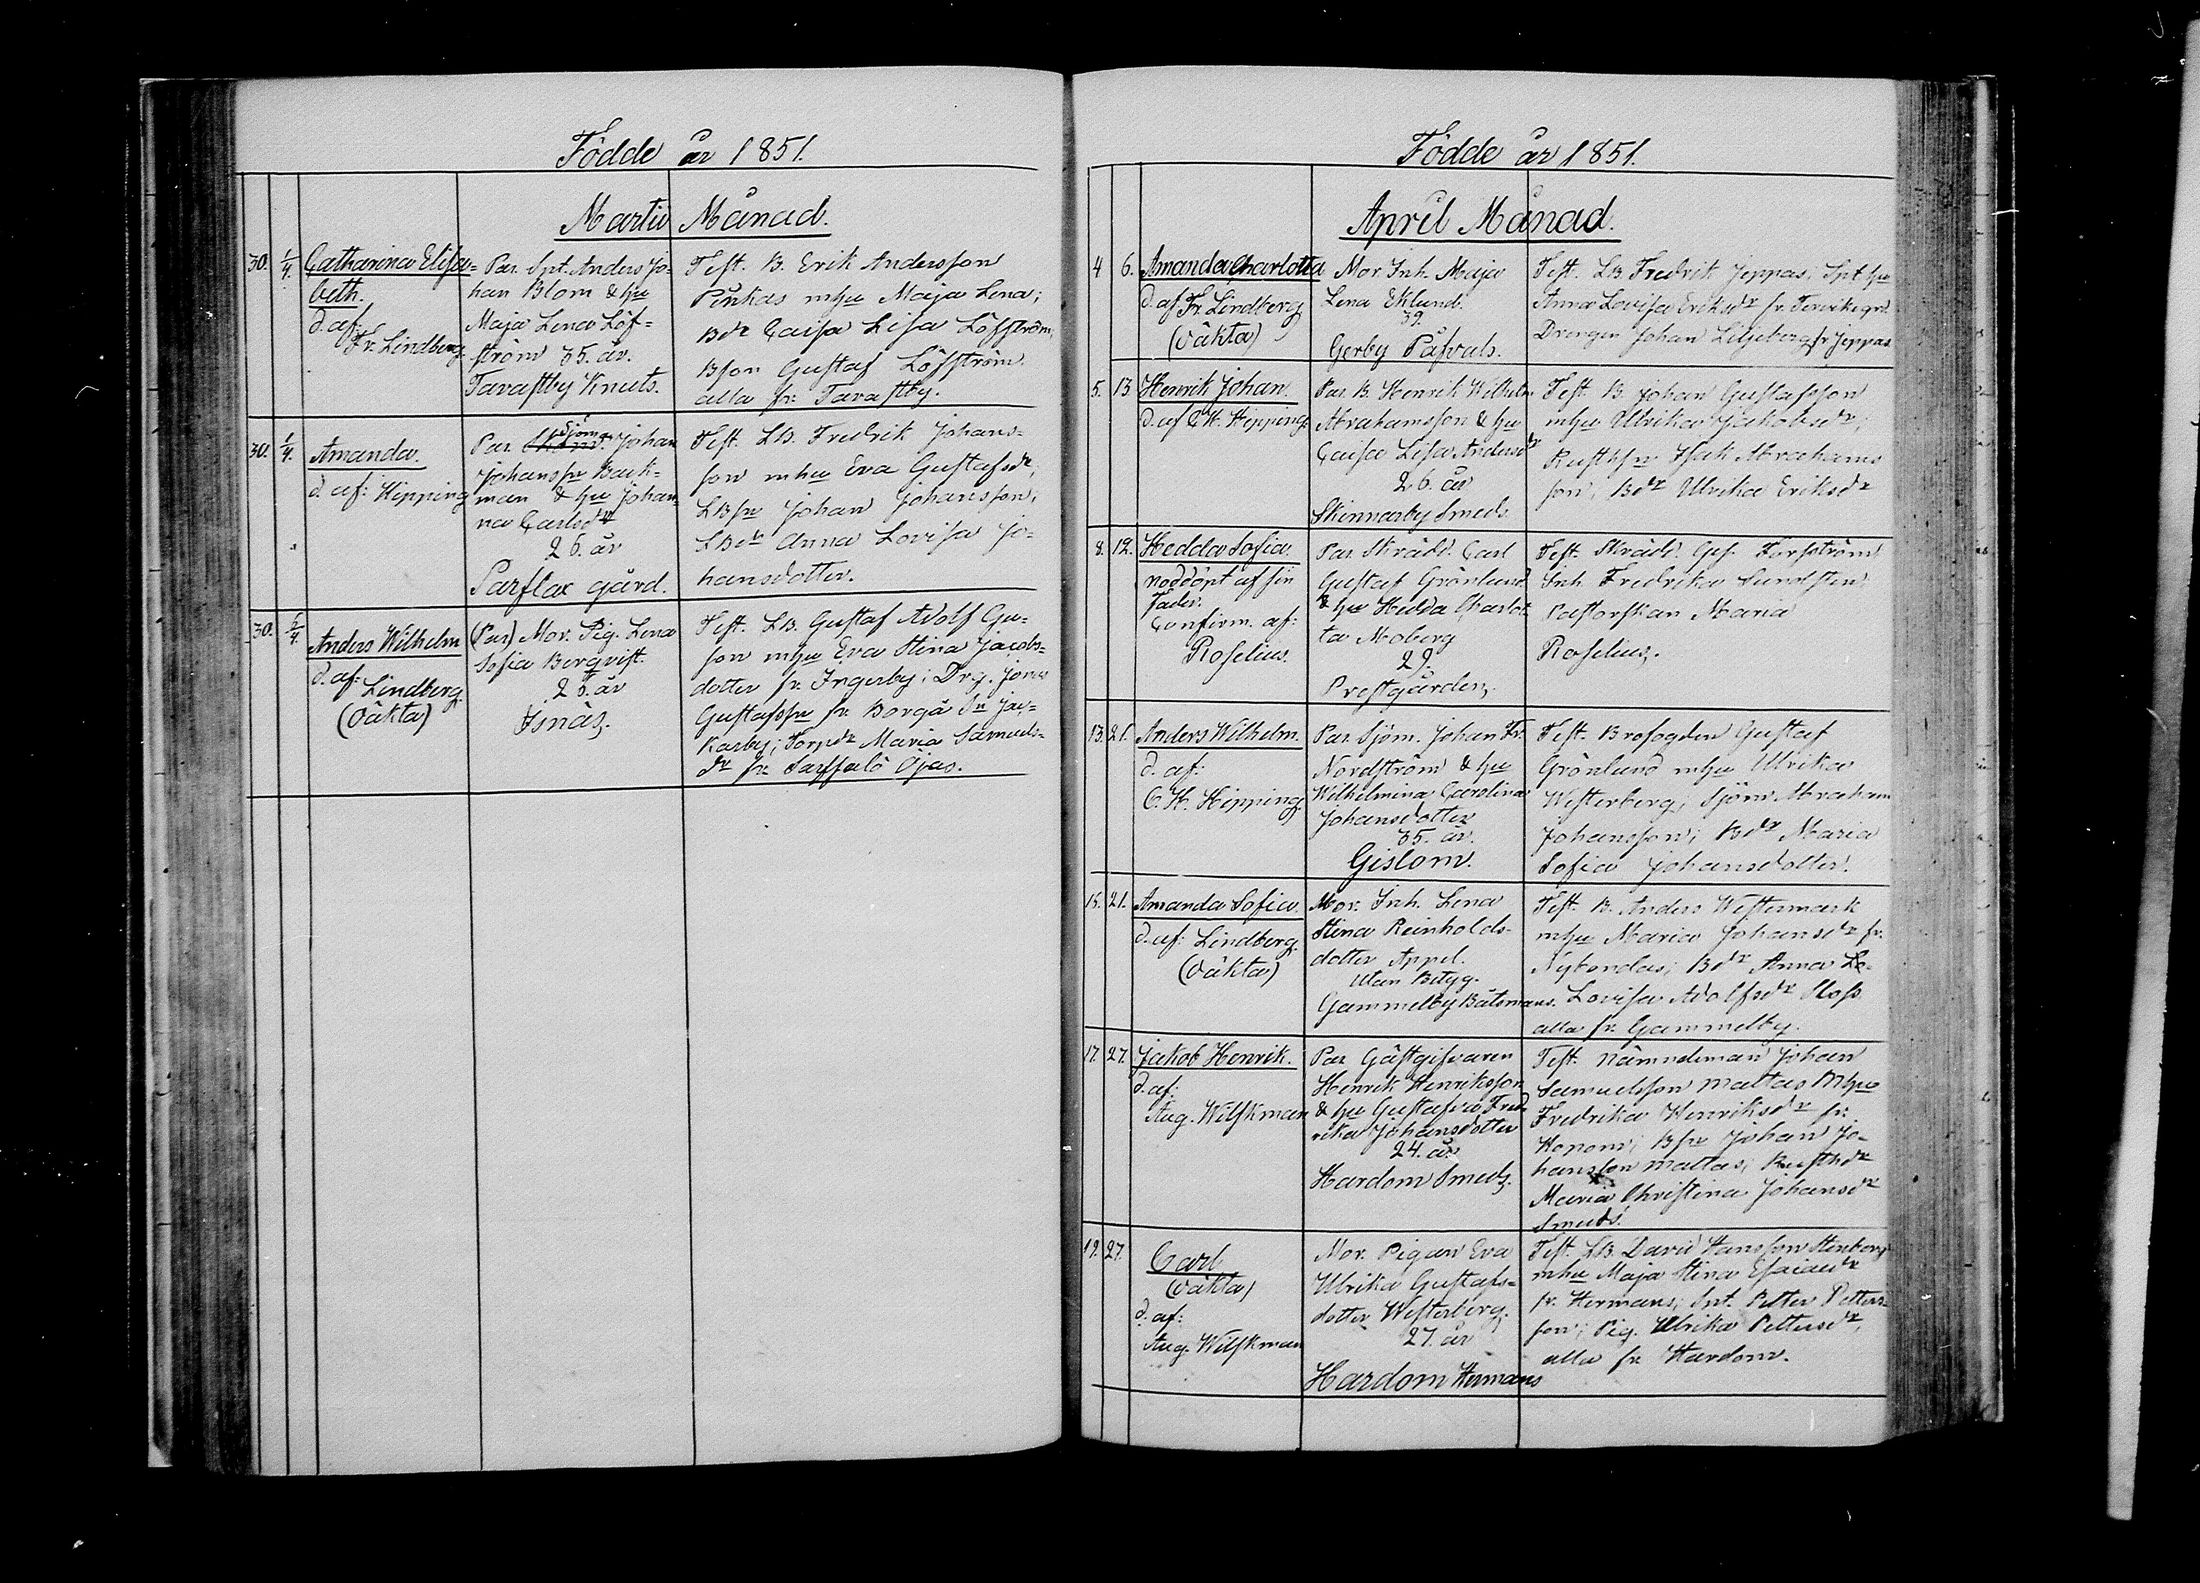 Födde år 1851.
Martii Månad.
30. 1/4. Catharina Elisa=
beth.
d. af:
Fr. Lindberg.
Par. Spt. Anders Jo=
han Blom & hu
Maja Lena Löf=
ström 35. år.
Tarastby Knuts.
Test. B. Erik Andersson
Pinkas mhu Maja Lena;
Bdr Caisa Lisa Löfström,
Bson Gustaf Löfström.
alla fr. Tarastby.
30. 1/4. Amanda.
d. af: Hipping
Sjöm.
Par. Johan
Johansson Back=
man & hu Johan=
na Carlsdr
26. år
Sarflax gård.
Test. LB. Fredrik Johans=
son mhu Eva Gustafsdr;
LBsn Johan Johansson;
LBdr Anna Lovisa Jo=
hansdotter.
30. 1/4. Anders Wilhelm
d. af:
Lindberg.
(oäkta)
(Par) Mor. Pig. Lena
Sofia Bergvist.
26. år
Isnäs.
Test. LB. Gustaf Adolf Gu=
son mhu Eva Stina Jacobs=
dotter fr. Ingerby; Drg. Jonas
Gustafsson fr. Borgå Sn Jac=
karby; Torpdr Maria Samuels=
dr fr. Sarfsalö Öjas.
Födde år 1851.
April Månad.
4 6. Amanda Charlotta
d. af Fr. Lindberg
(oäkta)
Mor. Inh. Maja
Lena Eklund.
39.
Gerby Påfvals.
Test. LB Fredrik Jeppas; Spt. hu
Anna Lovisa Eriksdr fr.
Drengen Johan Liljeberg fr Jeppas
5. 13. Henrik Johan.
d. af C. H. Hipping.
Par. B. Henrik Wilhelm
Abrahamsson & hu
Caisa Lisa Andersdr
26. år
Skinnarby Smeds.
Test. B. Johan Gustafsson
mhu Ulrika Jakobsdr;
Rusthsn Isak Abrahams
son; Bdr Ulrika Eriksdr
8. 12. Hedda Sofia.
nöddöpt af sin
fader.
Confirm. af:
Roselius.
Par. Skrädd. Carl
Gustaf Grönlund
& hu Hedda Charlot=
ta Moberg
29.
Prestgården.
Test. Skrädd. Gust. Forsström
Inh. Fredrika Sundsten
Pastorskan Maria
Roselius.
13. 21. Anders Wilhelm.
d. af:
C. H. Hipping
Par. Sjöm. Johan Fr.
Nordström & hu
Wilhelmina Carolina
Johansdotter
35. år.
Gislom.
Test. Brofogden Gustaf
Grönlund mhu Ulrika
Westerberg; Sjöm Abraham
Johansson; Bdr Maria
Sofia Johansdotter.
15. 21. Amanda Sofia.
d. af: Lindberg.
(oäkta)
Mor. Inh. Lena
Stina Reinholds=
dotter Appel.
Utan Betyg.
Gammelby Båtsmans.
Test. B. Anders Westermark
mhu Maria Johansdr fr.
Nybondas; Bdr Anna Lo=
Lovisa Adolfsdr Skogs
alla fr. Gammelby.
17. 27. Jakob Henrik.
d. af:
Aug. Wilskman
Par Gästgifvaren
Henrik Henriksson
& hu Gustafva Fred=
rika Johansdotter
24. år
Hardom Smeds.
Test. Nämndeman Johan
Samuelsson Mattas Mhu
Fredrika Henriksdr fr.
Hopom; Bsn Johan Jo=
hansson Mattas; Rusthdr
Maria Christina Johansdr
Smeds.
19. 27. Carl
(oäkta)
d. af:
Aug. Wilskman
Mor. Pigan Eva
Ulrika Gustafs=
dotter Westerberg.
27. år
Hardom Hermans
Test. LB. David Hansson Stenberg
mhu Maja Stina Esaiaedr
fr. Hermans; Spt. Petter Petters=
son; Pig. Ulrika Pettersdr,
alla fr Hardom.